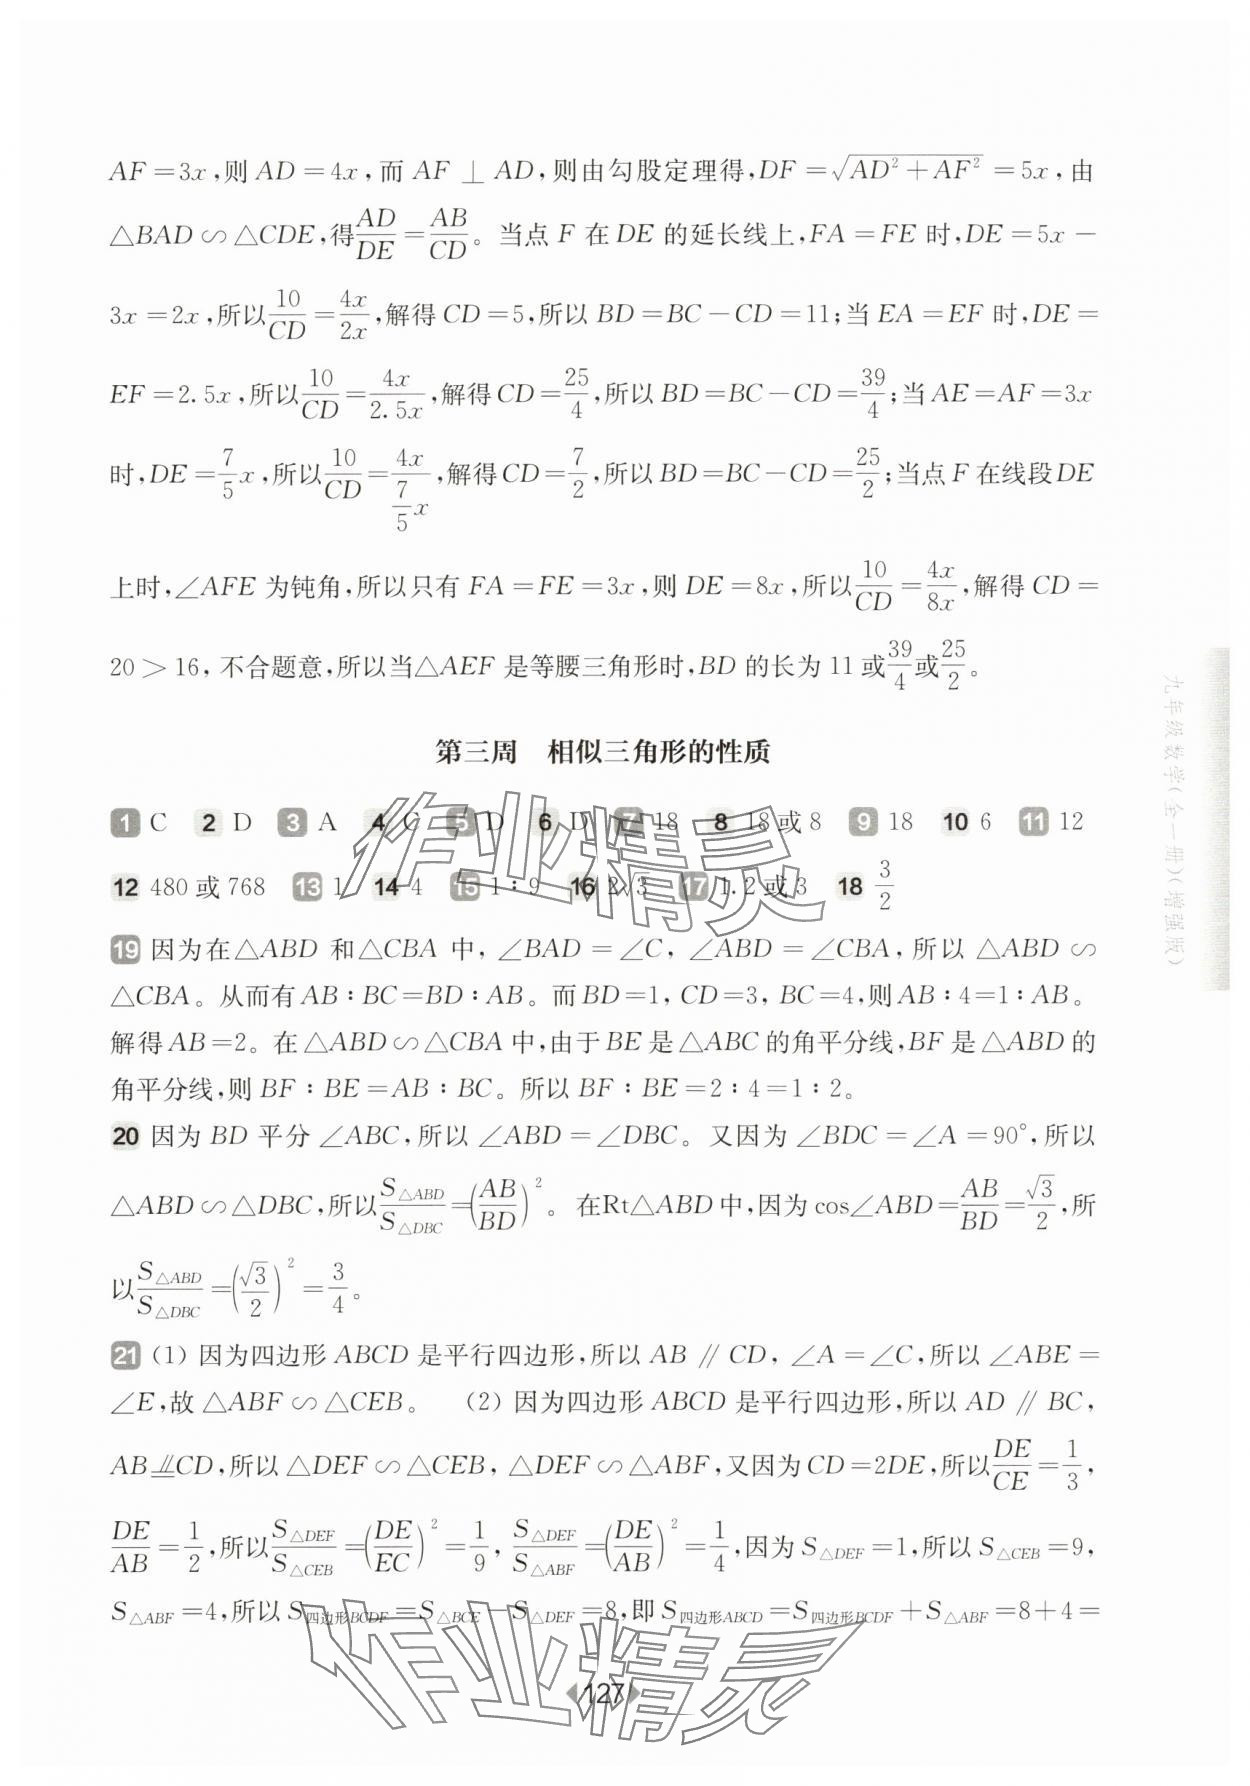 AF=3x,则AD=4x,而AF⊥AD,则由勾股定理得,DF=√(AD²+AF²)=5x,由
△BAD∽△CDE,得AD/DE=AB/CD。当点F在DE的延长线上,FA=FE时,DE=5x-
3x=2x,所以10/CD=4x/2x,解得CD=5,所以BD=BC-CD=11;当EA=EF时,DE=
EF=2.5x,所以10/CD=4x/2.5x,解得CD=25/4,所以BD=BC-CD=39/4;当AE=AF=3x
时,DE=7/5x,所以10/CD=4x/(7/5x),解得CD=7/2,所以BD=BC-CD=25/2;当点F在线段DE
上时,∠AFE为钝角,所以只有FA=FE=3x,则DE=8x,所以10/CD=4x/8x,解得CD=
20>16,不合题意,所以当△AEF是等腰三角形时,BD的长为11或39/4或25/2。
第三周 相似三角形的性质
1 C 2 D 3 A 4 C 5 D 6 D 7 18 8 18或8 9 18 10 6 11 12
12 480或768 13 1 14 4 15 1:9 16 2√3 17 1.2或3 18 3/2
19 因为在△ABD和△CBA中,∠BAD=∠C,∠ABD=∠CBA,所以△ABD∽
△CBA。从而有AB:BC=BD:AB。而BD=1,CD=3,BC=4,则AB:4=1:AB。
解得AB=2。在△ABD∽△CBA中,由于BE是△ABC的角平分线,BF是△ABD的
角平分线,则BF:BE=AB:BC。所以BF:BE=2:4=1:2。
20 因为BD平分∠ABC,所以∠ABD=∠DBC。又因为∠BDC=∠A=90°,所以
△ABD∽△DBC,所以S△ABD/S△DBC=(AB/BD)²。在Rt△ABD中,因为cos∠ABD=AB/BD=√3/2,所
以S△ABD/S△DBC=(√3/2)²=3/4。
21 (1) 因为四边形ABCD是平行四边形,所以AB∥CD,∠A=∠C,所以∠ABE=
∠E,故△ABF∽△CEB。 (2) 因为四边形ABCD是平行四边形,所以AD∥BC,
AB⫫CD,所以△DEF∽△CEB,△DEF∽△ABF,又因为CD=2DE,所以DE/CE=1/3,
DE/AB=1/2,所以S△DEF/S△CEB=(DE/EC)²=1/9,S△DEF/S△ABF=(DE/AB)²=1/4,因为S△DEF=1,所以S△CEB=9,
S△ABF=4,所以S四边形BCDF=S△BCE-S△DEF=8,即S四边形ABCD=S四边形BCDF+S△ABF=8+4=
127
九年级数学(全一册)(增强版)
作业精灵
作业精灵